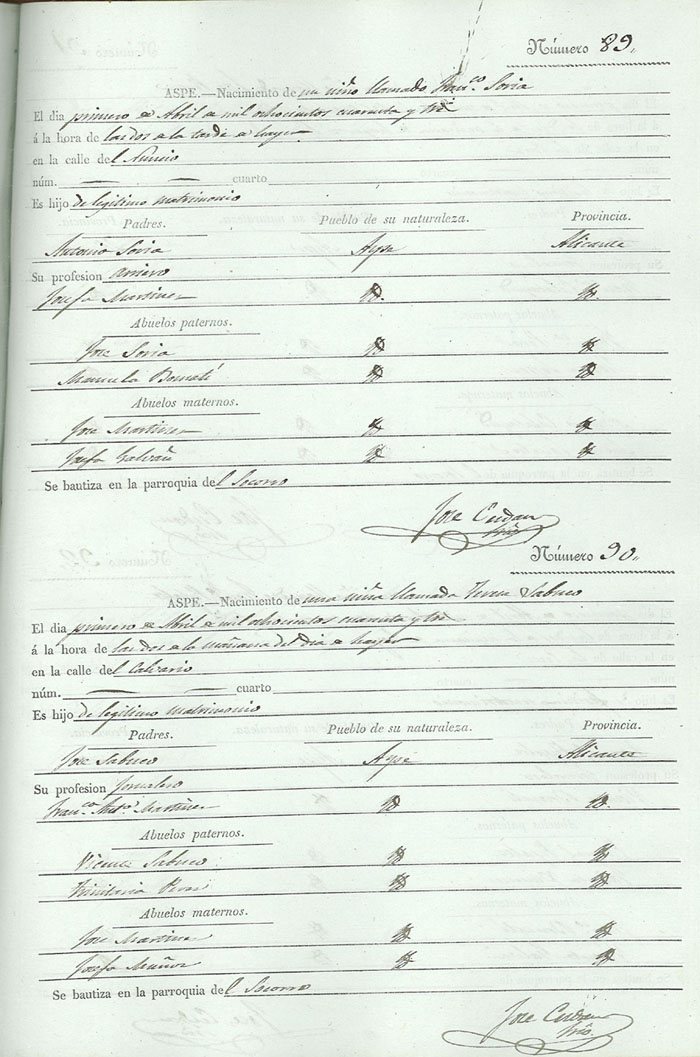 Número 89.
ASPE.—Nacimiento de un niño llamado Fran.co Soria
El dia primero de Abril de mil ochocientos cuarenta y tre
á la hora de las dos de la tarde de hayer
en la calle del Nuncio
núm. — — cuarto
Es hijo de legitimo matrimonio
Padres. Pueblo de su naturaleza. Provincia.
Antonio Soria Aspe Alicante
Su profesion arriero
Josefa Martinez
Abuelos paternos.
Jose Soria
Manuela
Abuelos maternos.
Jose Martinez
Josefa Galvañ
Se bautiza en la parroquia del Socorro
Jose Cerdan
Número 90.
ASPE.—Nacimiento de una niña llamada Teresa Sabuco
El dia primero de Abril de mil ochocientos cuarenta y tre
á la hora de las dos de la mañana del dia de hayer
en la calle del Calvario
núm. — — cuarto
Es hijo de legitimo matrimonio
Padres. Pueblo de su naturaleza. Provincia.
Jose Sabuco Aspe Alicante
Su profesion Jornalero
Fran.ca Ant.a Martinez
Abuelos paternos.
Vicente Sabuco
Trinitaria
Abuelos maternos.
Jose Martinez
Josefa Muñoz
Se bautiza en la parroquia del Socorro
Jose Cerdan